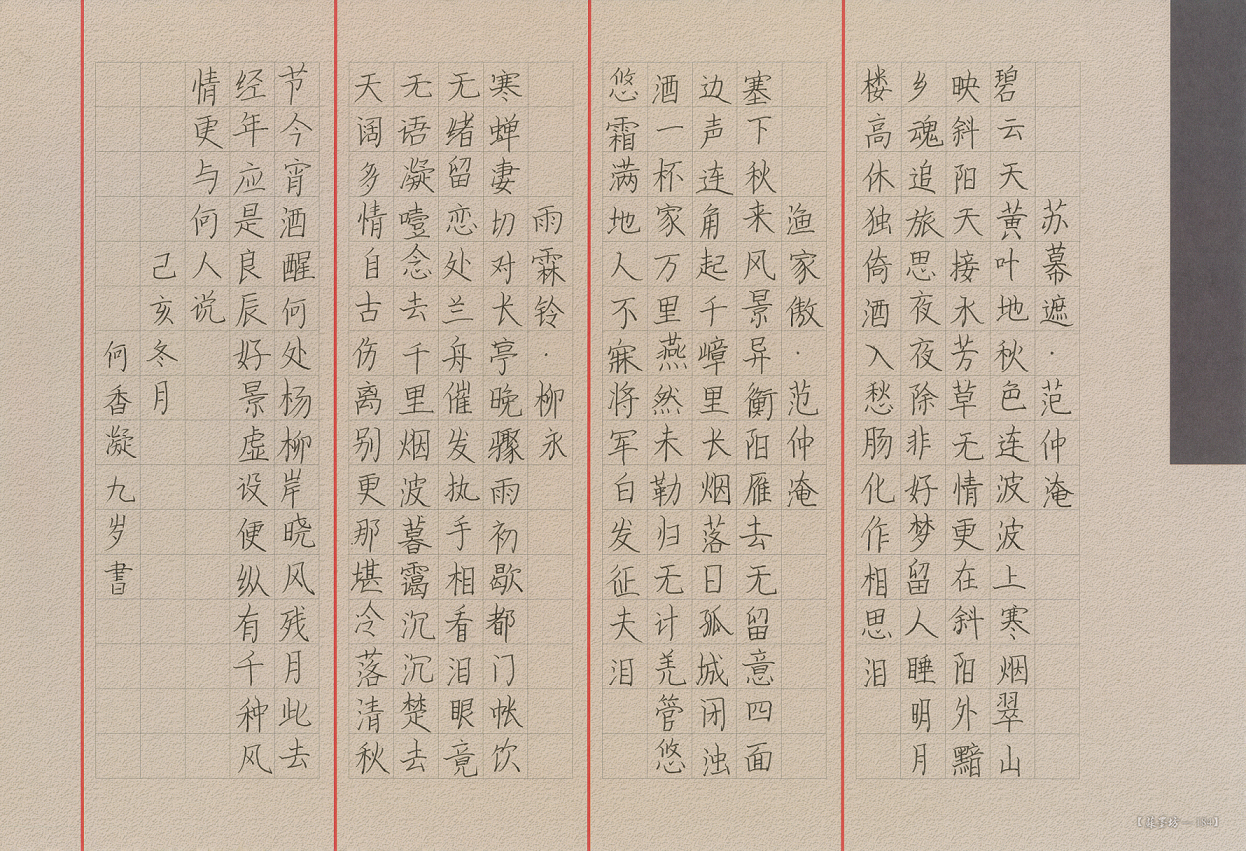 苏幕遮·范仲淹
碧云天黄叶地秋色连波波上寒烟翠山
映斜阳天接水芳草无情更在斜阳外黯
乡魂追旅思夜夜除非好梦留人睡明月
楼高休独倚酒入愁肠化作相思泪
渔家傲·范仲淹
塞下秋来风景异衡阳雁去无留意四面
边声连角起千嶂里长烟落日孤城闭浊
酒一杯家万里燕然未勒归无计羌管悠
悠霜满地人不寐将军白发征夫泪
雨霖铃·柳永
寒蝉凄切对长亭晚骤雨初歇都门帐饮
无绪留恋处兰舟催发执手相看泪眼竟
无语凝噎念去千里烟波暮霭沉沉楚去
天阔多情自古伤离别更那堪冷落清秋
节今宵酒醒何处杨柳岸晓风残月此去
经年应是良辰好景虚设便纵有千种风
情更与何人说
己亥冬月
何香凝九岁書